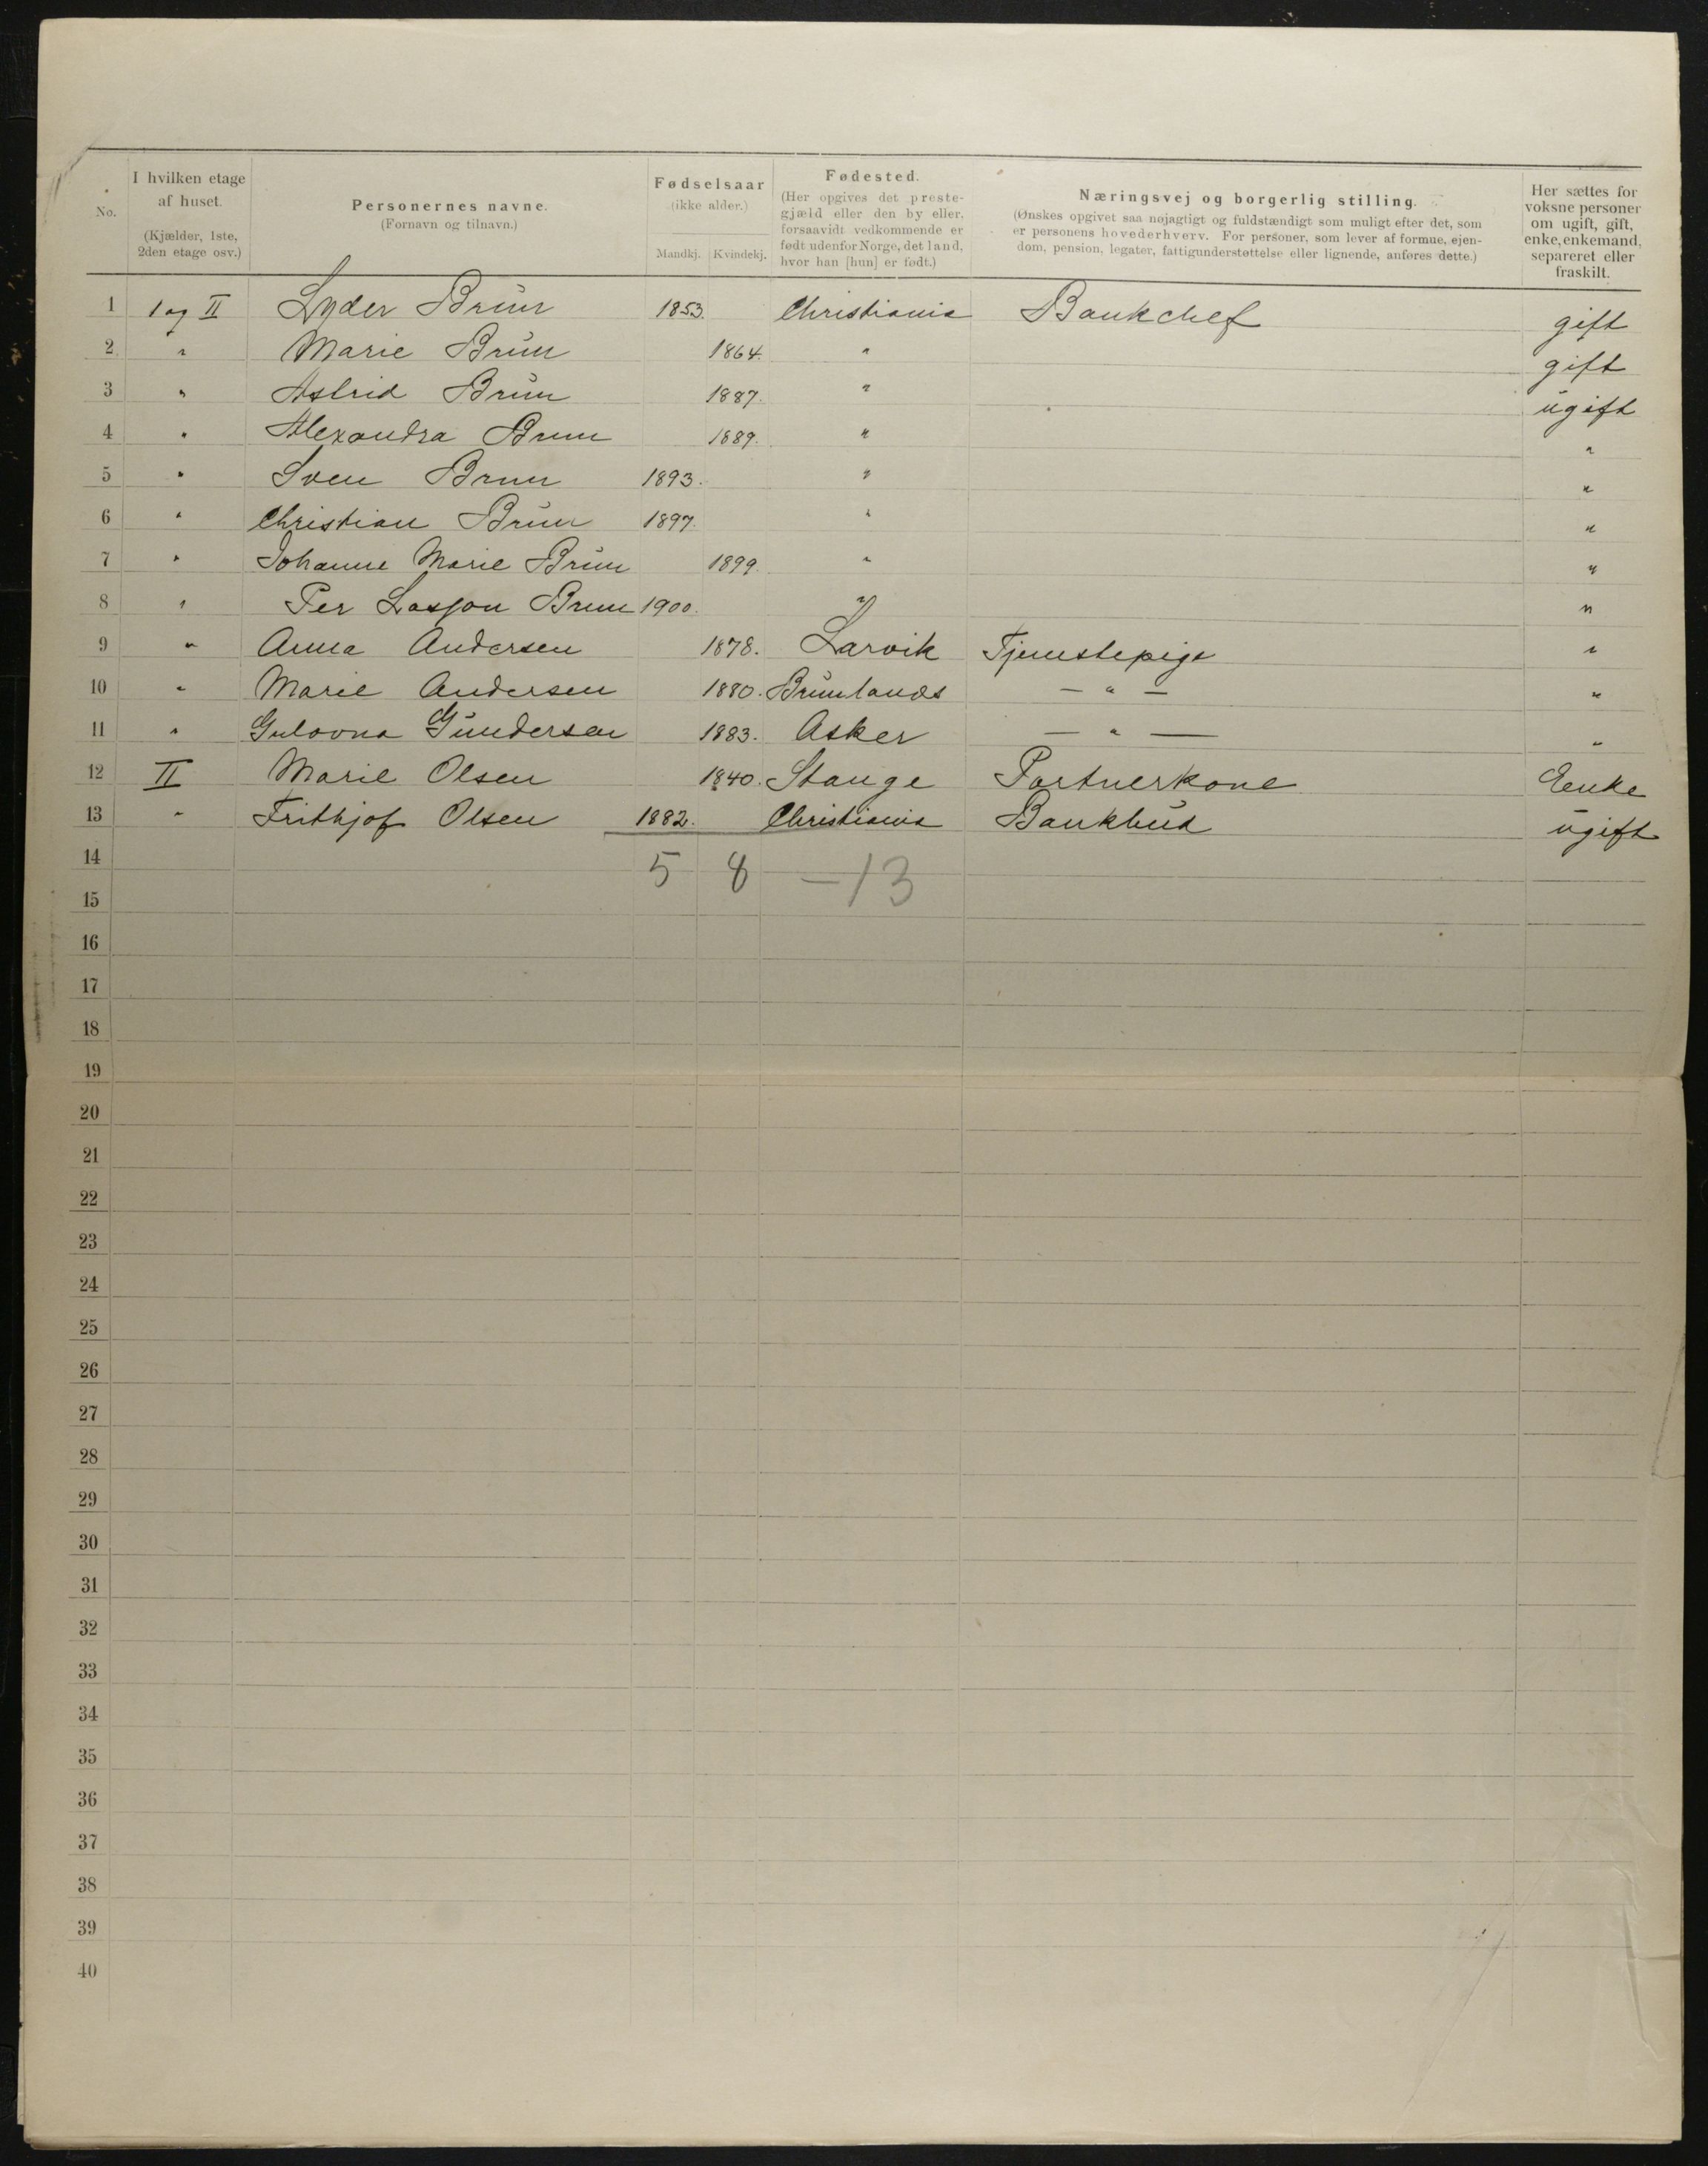 No.
I hvilken etage
af huset.
(Kjælder, 1ste,
2den etage osv.)
Personernes navne.
(Fornavn og tilnavn.)
Fødselsaar
(ikke alder.)
Mandkj. Kvindekj.
Fødested.
(Her opgives det preste-
gjæld eller den by eller,
forsaavidt vedkommende er
født udenfor Norge, det land,
hvor han [hun] er født.)
Næringsvej og borgerlig stilling.
(Ønskes opgivet saa nøjagtigt og fuldstændigt som muligt efter det, som
er personens hovederhverv. For personer, som lever af formue, ejen-
dom, pension, legater, fattigunderstøttelse eller lignende, anføres dette.)
Her sættes for
voksne personer
om ugift, gift,
enke, enkemand,
separeret eller
fraskilt.
1 1 og II Lyder Brun 1853. Christiania Bankchef gift
2 " Marie Brun 1864. " gift
3 " Astrid Brun 1887. " ugift
4 " Alexandra Brun 1889. " "
5 " Sven Brun 1893. " "
6 " Christian Brun 1897. " "
7 " Johanne Marie Brun 1899. " "
8 " Per Lasson Brun 1900. " "
9 " Anna Andersen 1878. Larvik Tjenestepige "
10 " Marie Andersen 1880. Brunlanæs — " — "
11 " Gulovna Gundersen 1883. Asker — " — "
12 II Marie Olsen 1840. Stange Portnerkone Enke
13 " Frithjof Olsen 1882. Christiania Bankbud ugift
14 5 8 — 13
15
16
17
18
19
20
21
22
23
24
25
26
27
28
29
30
31
32
33
34
35
36
37
38
39
40